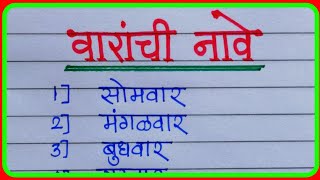 वारांची नावे
1] सोमवार
2] मंगळवार
3] बुधवार